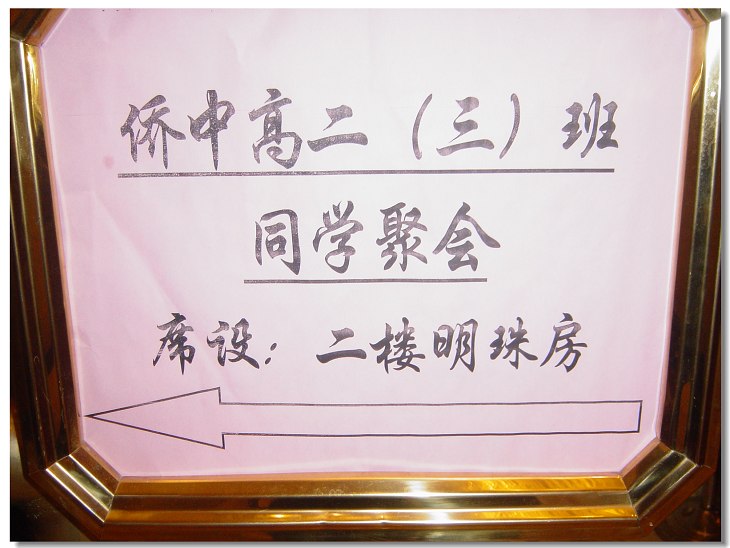 侨中高二（三）班
同学聚会
席设：二楼明珠房